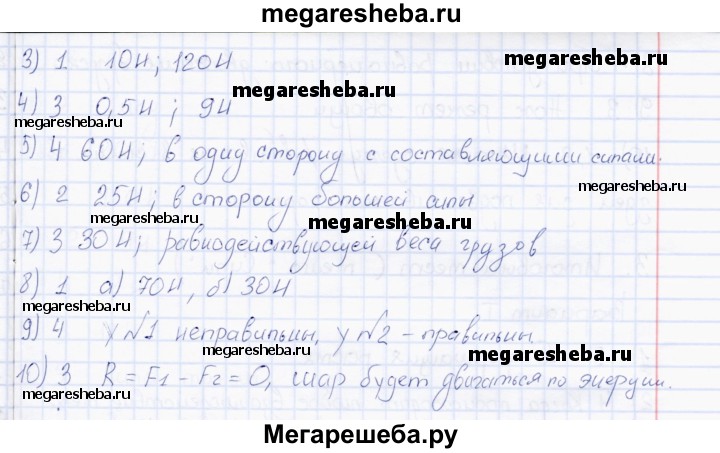 megaresheba.ru
3) 1 10Н; 120Н
megaresheba.ru
megaresheba.ru
4) 3 0,5Н; 9Н
megaresheba.ru
megaresheba.ru
5) 4 60Н; в одну сторону с составляющими силами.
6) 2 25Н; в сторону большей силы
megaresheba.ru
megaresheba.ru
7) 3 30Н; равнодействующей веса грузов
8) 1 а) 70Н, б) 30Н
megaresheba.ru
9) 4 у №1 неправильны, у №2 - правильны.
megaresheba.ru
10) 3 R = F1 - F2 = 0, шар будет двигаться по энерции.
megaresheba.ru
Мегарешеба.ру